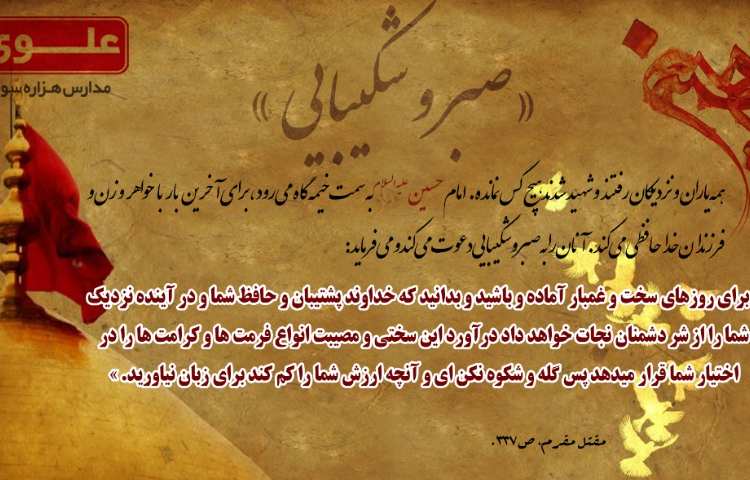 علــوی
مدارس هزاره سو
حسین
«صبر و شکیبایی»
همه یاران و نزدیکان رفتند و شهید شدند هیچ کس نمانده. امام حسین علیه‌السلام به سمت خیمه گاه می رود، برای آخرین بار با خواهر و زن و
فرزندان خداحافظی می کند. آنان را به صبر و شکیبایی دعوت می کند و می فرماید:
برای روزهای سخت و غمبار آماده و باشید و بدانید که خداوند پشتیبان و حافظ شما و در آینده نزدیک
شما را از شر دشمنان نجات خواهد داد درآورد این سختی و مصیبت انواع فرمت ها و کرامت ها را در
اختیار شما قرار میدهد پس گله و شکوه نکن ای و آنچه ارزش شما را کم کند برای زبان نیاورید. »
مقتل مقرم، ص ۳۳۷.